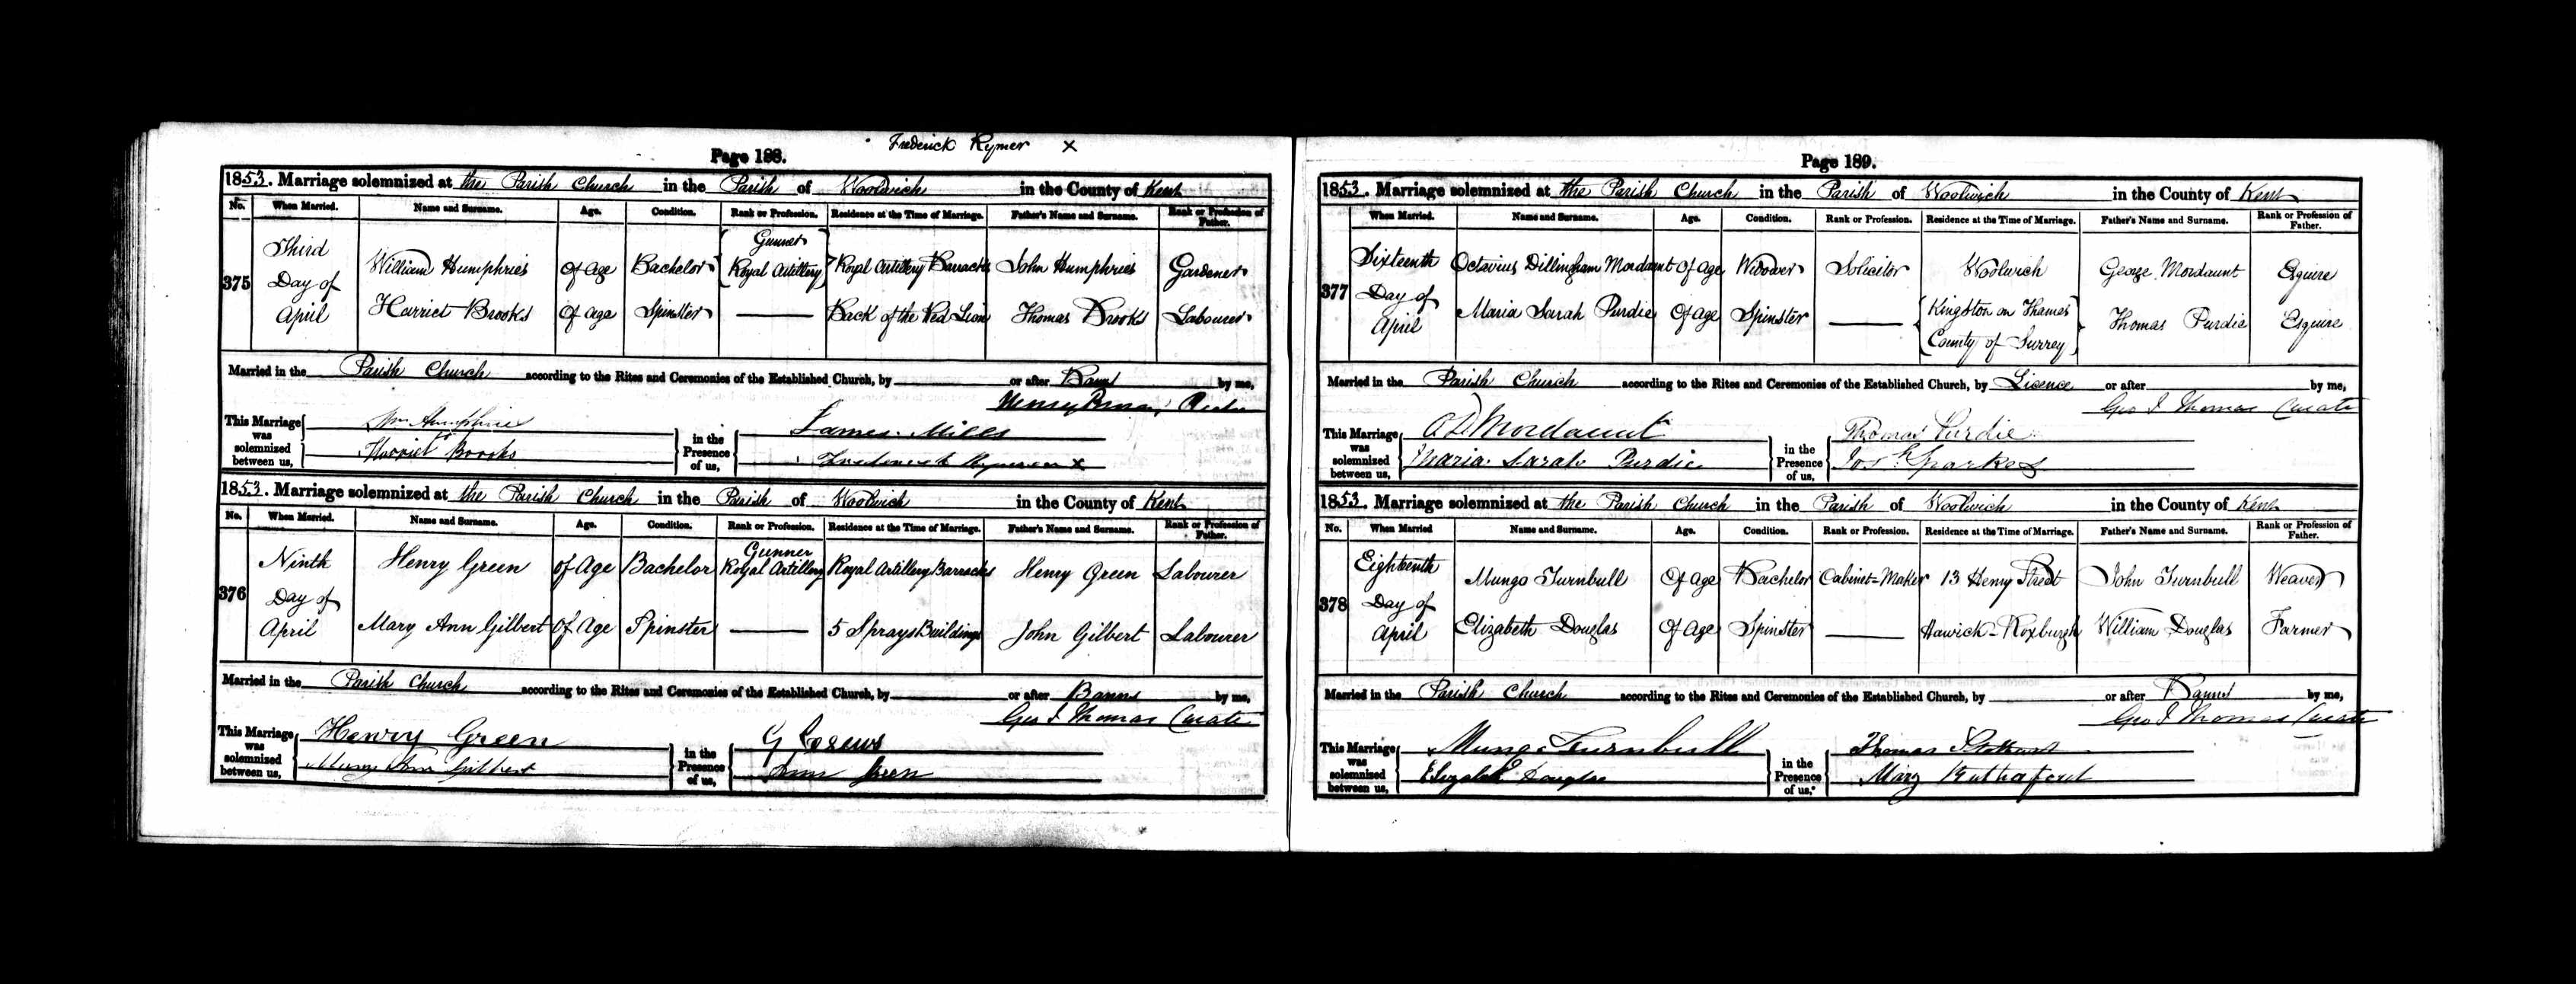 Frederick Rymer x
Page 188.
1853. Marriage solemnized at the Parish Church in the Parish of Woolwich in the County of Kent
No. When Married. Name and Surname. Age. Condition. Rank or Profession. Residence at the Time of Marriage. Father's Name and Surname. Rank or Profession of Father.
375 Third Day of April
William Humphries Of Age Bachelor Gunner Royal Artillery Royal Artillery Barracks John Humphries Gardener
Harriet Brooks Of age Spinster Back of the Red Lion Thomas Brooks Labourer
Married in the Parish Church according to the Rites and Ceremonies of the Established Church, by or after Banns by me,
Henry Brown Rector
This Marriage was solemnized between us, Wm Humphries Harriet Brooks
in the Presence of us, James Mills Frederick Rymer x
1853. Marriage solemnized at the Parish Church in the Parish of Woolwich in the County of Kent
No. When Married. Name and Surname. Age. Condition. Rank or Profession. Residence at the Time of Marriage. Father's Name and Surname. Rank or Profession of Father.
376 Ninth Day of April
Henry Green Of Age Bachelor Gunner Royal Artillery Royal Artillery Barracks Henry Green Labourer
Mary Ann Gilbert Of Age Spinster 5 Sprays Buildings John Gilbert Labourer
Married in the Parish Church according to the Rites and Ceremonies of the Established Church, by or after Banns by me,
Geo I Thomas Curate
This Marriage was solemnized between us, Henry Green Mary Ann Gilbert
in the Presence of us, G Crews Ann Green
Page 189.
1853. Marriage solemnized at the Parish Church in the Parish of Woolwich in the County of Kent
When Married. Name and Surname. Age. Condition. Rank or Profession. Residence at the Time of Marriage. Father's Name and Surname. Rank or Profession of Father.
377 Sixteenth Day of April
Octavius Dillingham Mordaunt Of Age Widower Solicitor Woolwich George Mordaunt Esquire
Maria Sarah Purdie Of Age Spinster Kingston on Thames County of Surrey Thomas Purdie Esquire
Married in the Parish Church according to the Rites and Ceremonies of the Established Church, by Licence or after by me,
Geo I Thomas Curate
This Marriage was solemnized between us, O D Mordaunt Maria Sarah Purdie
in the Presence of us, Thomas Purdie Josh Sparkes
1853. Marriage solemnized at the Parish Church in the Parish of Woolwich in the County of Kent
No. When Married Name and Surname. Age. Condition. Rank or Profession. Residence at the Time of Marriage. Father's Name and Surname. Rank or Profession of Father.
378 Eighteenth Day of April
Mungo Turnbull Of Age Bachelor Cabinet-Maker 13 Henry Street John Turnbull Weaver
Elizabeth Douglas Of Age Spinster Hawick-Roxburgh William Douglas Farmer
Married in the Parish Church according to the Rites and Ceremonies of the Established Church, by or after Banns by me,
Geo I Thomas Curate
This Marriage was solemnized between us, Mungo Turnbull Elizabeth Douglas
in the Presence of us, Thomas Mary Rutherford